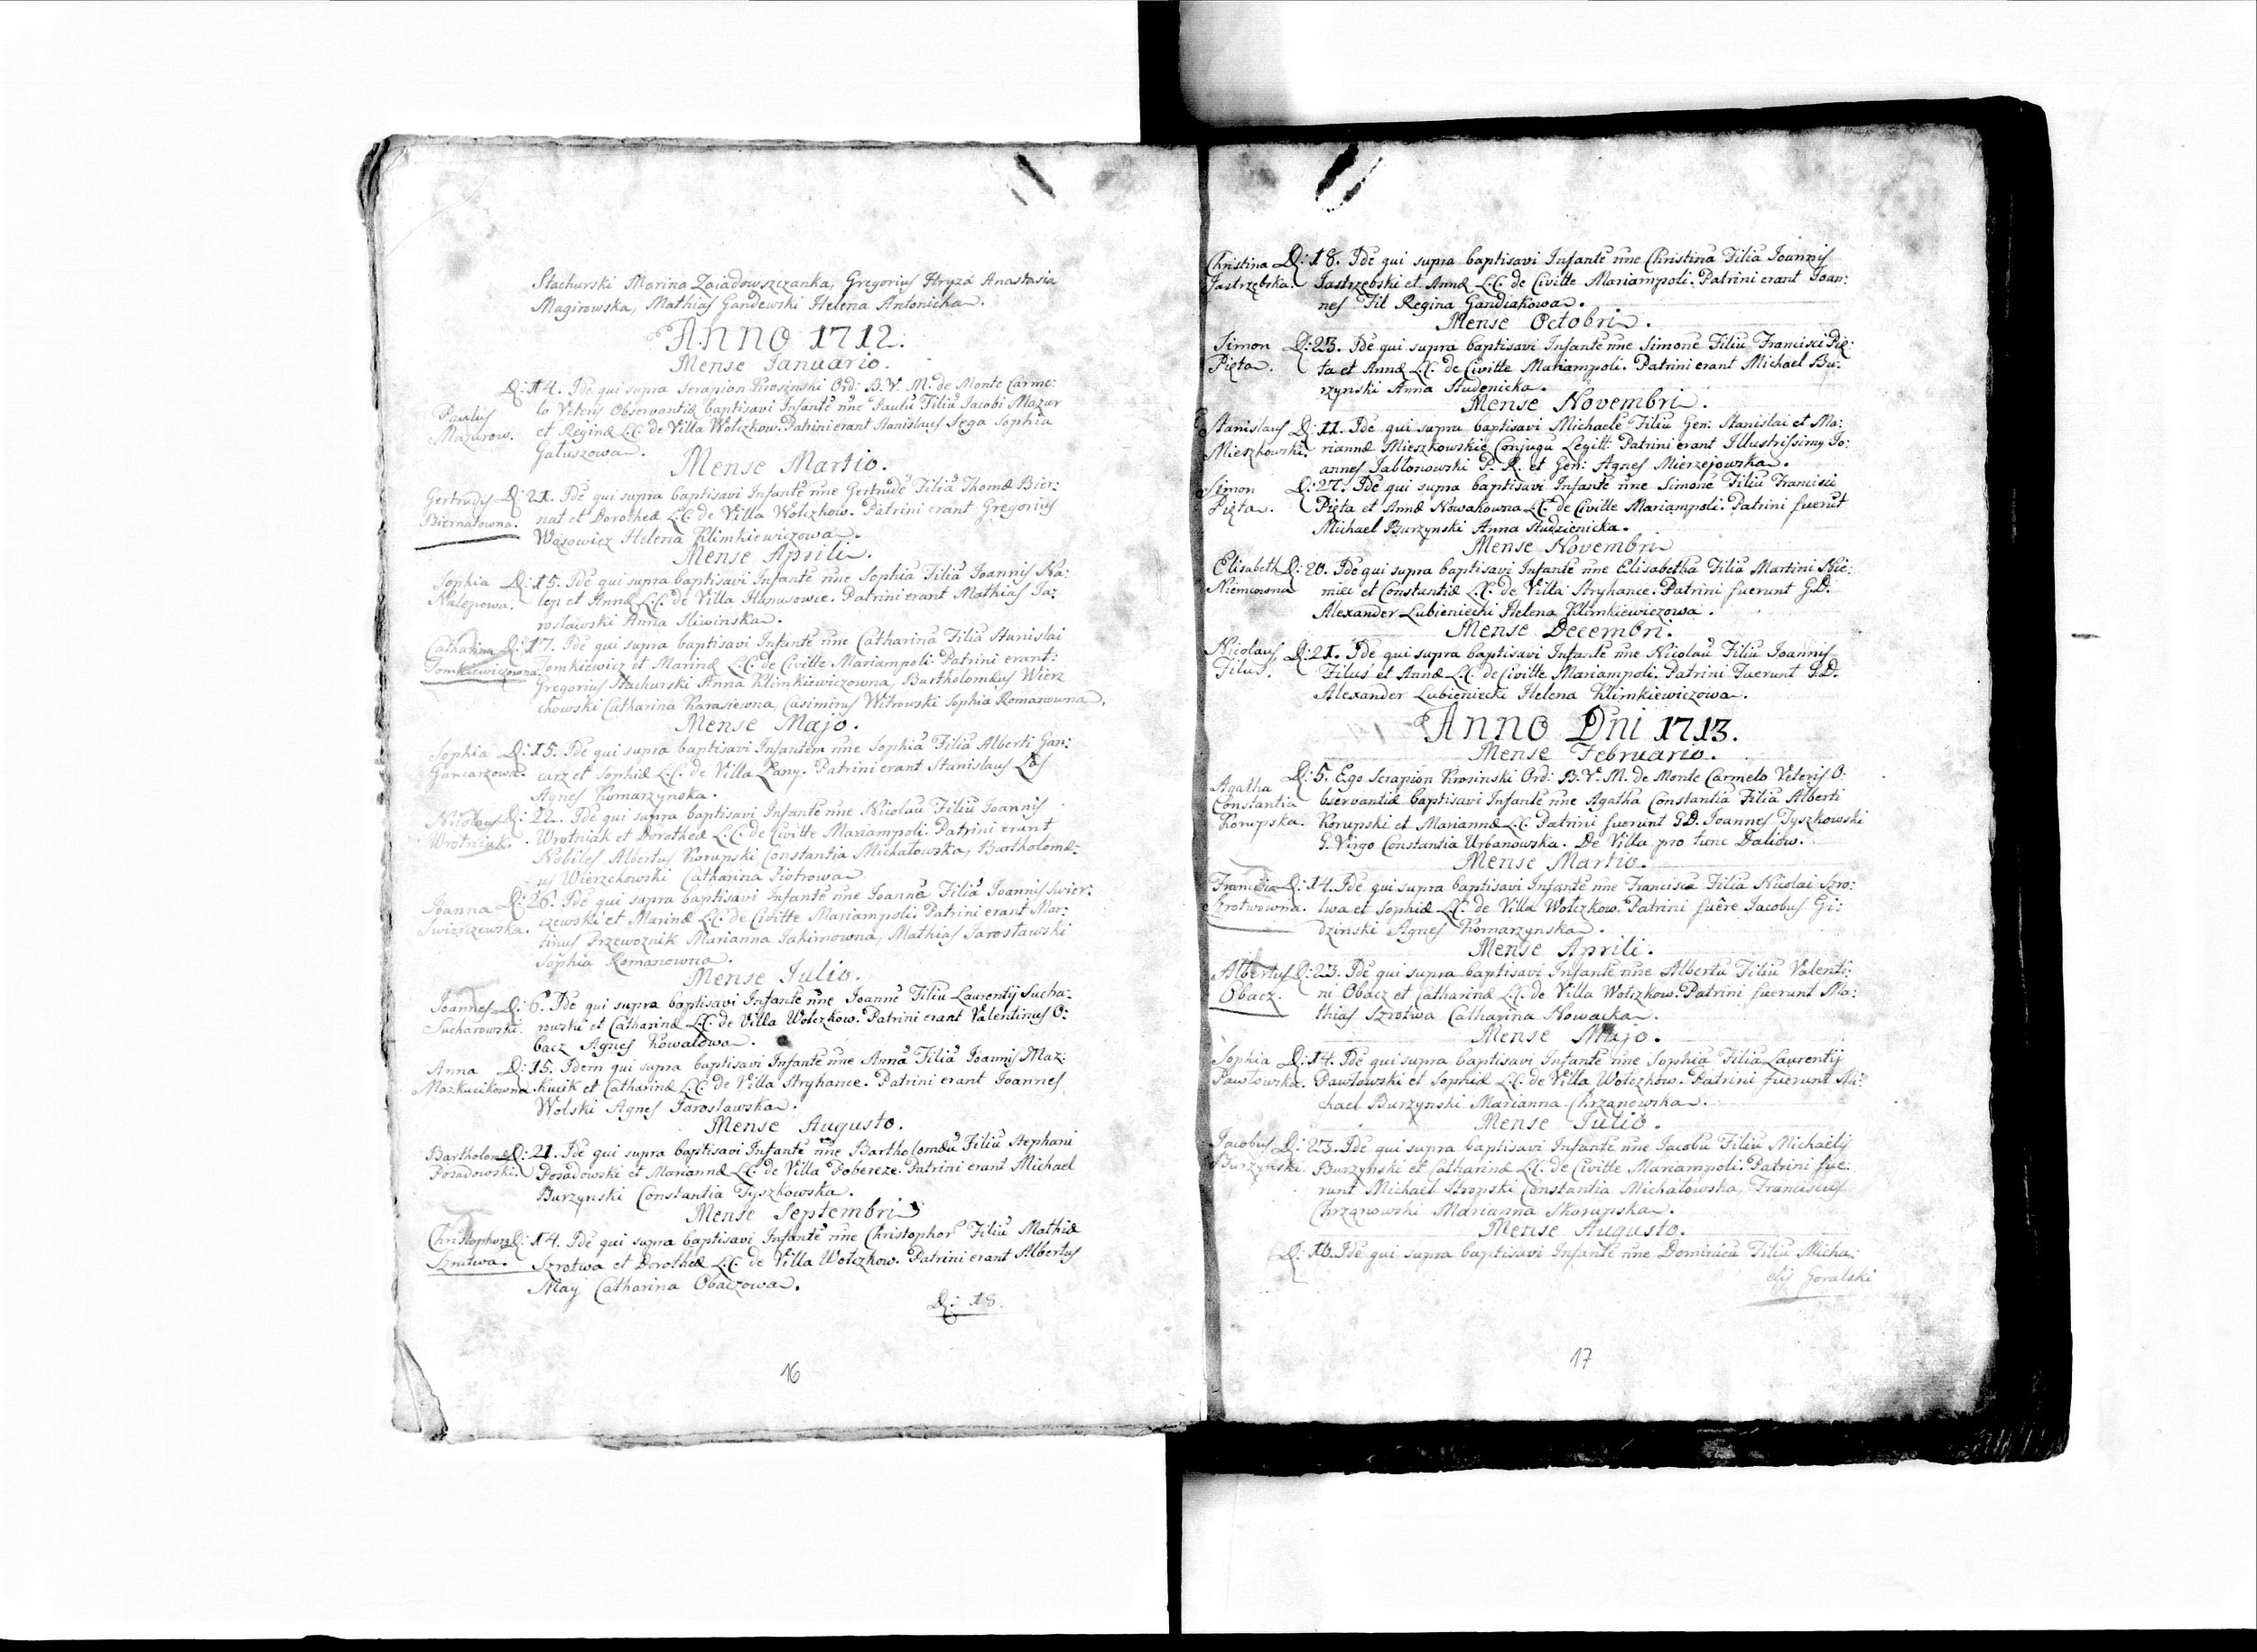 Stachurski Marina Zaiadowszczanka, Gregorius Hryza Anastasia
Magirowska, Mathias Gandewski Helena Antonicha.
Anno 1712.
Mense Januario.
D: 14. Idē qui supra Serapion Krosinski Ord: B. V. M. de Monte Carme:
Paulus lo Veteris Observantiæ baptisavi Infantē nne Paulū Filiū Jacobi Mazur
Mazurow. et Reginæ L.C. de Villa Wołczkow. Patrini erant Stanislaus Sega Sophia
Gałuszowa.
Mense Martio.
Gertrudis D: 21. Idē qui supra baptisavi Infantē nne Gertrudē Filiā Thomæ Bier:
Biernatowna. nat et Dorotheæ L.C. de Villa Wołczkow. Patrini erant Gregorius
Wąsowicz Helena Klimkiewiczowa.
Mense Aprili.
Sophia D: 15. Idē qui supra baptisavi Infantē nne Sophiā Filiā Joannis Na:
Nalepowa. lep et Annæ L.C. de Villa Hanusowce. Patrini erant Mathias Ja:
rosławski Anna Sliwinska.
Catharina D: 17. Idē qui supra baptisavi Infantē nne Catharinā Filiā Stanislai
Tomkiewiczowna. Tomkiewicz et Marinæ L.C. de Civitte Mariampoli. Patrini erant:
Gregorius Stachurski Anna Klimkiewiczowna, Bartholomæus Wierz
chowski Catharina Karasiewna, Casimirus Witrowski Sophia Romanowna.
Mense Majo.
Sophia D: 15. Idē qui supra baptisavi Infantem nne Sophiā Filiā Alberti Gan:
Gancarzowa. carz et Sophiæ L.C. de Villa Łany. Patrini erant Stanislaus Łoś
Agnes Komarzynska.
Nicolaus D: 22. Idē qui supra baptisavi Infantē nne Nicolaū Filiū Joannis
Wrotniak. Wrotniak et Dorotheæ L.C. de Civitte Mariampoli. Patrini erant
Nobiles Albertus Korupski Constantia Michałowska, Bartholomæ:
us Wierzchowski Catharina Piotrowa
Joanna D: 26. Idē qui supra baptisavi Infantē nne Joannā Filiā Joannis Swier:
Swierczewska. czewski et Marinæ L.C. de Civitte Mariampoli. Patrini erant Mar:
tinus Przewoznik Marianna Jakimowna, Mathias Jarosławski
Sophia Romanowna.
Mense Julio.
Joannes D: 6. Idē qui supra baptisavi Infantē nne Joannē Filiū Laurentij Sucha:
Sucharowski. rowski et Catharinæ L.C. de Villa Wołczkow. Patrini erant Valentinus O:
bacz Agnes Kowalowa.
Anna D: 15. Idem qui supra baptisavi Infantē nne Annā Filiā Joannis Maz:
Mazkucikowna kucik et Catharinæ L.C. de Villa Stryhance. Patrini erant Joannes
Wolski Agnes Jarosławska.
Mense Augusto.
Bartholomæ D: 21. Idē qui supra baptisavi Infantē nne Bartholomæū Filiū Stephani
Posadowski. Posadowski et Mariannæ L.C. de Villa Pobereze. Patrini erant Michael
Burzynski Constantia Tyszkowska.
Mense Septembri
Christophor D: 14. Idē qui supra baptisavi Infantē nne Christophor Filiū Mathiæ
Szrotwa. Szrotwa et Dorotheæ L.C. de Villa Wołczkow. Patrini erant Albertus
May Catharina Obaczowa.
D: 18.
16
Christina D: 18. Idē qui supra baptisavi Infantē nne Christinā Filiā Joannis
Jastrzębska. Jastrzębski et Annæ L.C. de Civitte Mariampoli. Patrini erant Joan:
nes Fil Regina Gandiakowa.
Mense Octobri.
Simon D: 23. Idē qui supra baptisavi Infantē nne Simonē Filiū Francisci Pię:
Pięta. ta et Annæ L.C. de Civitte Mariampoli. Patrini erant Michael Bu:
rzynski Anna Studenicka.
Mense Novembri.
Stanislaus D: 11. Idē qui supra baptisavi Michaelē Filiū Gen: Stanislai et Ma:
Mieszkowski riannæ Mieszkowskie Conjugū Legitt: Patrini erant Illustrissimg Jo:
annes Jabłonowski P. R. et Gen: Agnes Mierzejowska.
Simon D: 27. Idē qui supra baptisavi Infantē nne Simonē Filiū Francisci
Pięta. Pięta et Annæ Nowakowna L.C. de Civitte Mariampoli. Patrini fuerūt
Michael Burzynski Anna Studzienicka.
Mense Novembri
Elisabeth D: 20. Idē qui supra baptisavi Infantē nne Elisabethā Filiā Martini Nie:
Niemcowna miec et Constantiæ L.C. de Villa Stryhance. Patrini fuerunt G.D.
Alexander Lubieniecki Helena Klimkiewiczowa.
Mense Decembri.
Nicolaus D: 21. Idē qui supra baptisavi Infantē nne Nicolaū Filiū Joannis
Filus. Filus et Annæ L.C. de Civitte Mariampoli. Patrini Fuerunt G.D.
Alexander Lubieniecki Helena Klimkiewiczowa.
Anno Dni 1713.
Mense Februario.
D: 5. Ego Serapion Krosinski Ord: B. V. M. de Monte Carmelo Veteris O:
Agatha Constantia bservantiæ baptisavi Infantē nne Agathā Constantiā Filiā Alberti
Korupska. Korupski et Mariannæ L.C. Patrini fuerunt G.D. Joannes Tyszkowski
G. Virgo Constantia Urbanowska. De Villa pro tunc Daliow.
Mense Martio.
Francisca D: 14. Idē qui supra baptisavi Infantē nne Franciscā Filiā Nicolai Szro:
Szrotwowna. twa et Sophiæ L.C. de Villa Wołczkow. Patrini fuêre Jacobus Gi:
dzinski Agnes Komarzynska.
Mense Aprili.
Albertus D: 23. Idē qui supra baptisavi Infantē nne Albertū Filiū Valenti:
Obacz. ni Obacz et Catharinæ L.C. de Villa Wołczkow. Patrini fuerunt Ma:
thias Szrotwa Catharina Nowacka.
Mense Majo.
Sophia D: 14. Idē qui supra baptisavi Infantē nne Sophiā Filiā Laurentij
Pawłowska. Pawłowski et Sophiæ L.C. de Villa Wołczkow. Patrini fuerunt Mi:
chael Burzynski Marianna Chrzanowska.
Mense Julio.
Jacobus D: 23. Idē qui supra baptisavi Infantē nne Jacobū Filiū Michaelis
Burzynski. Burzynski et Catharinæ L.C. de Civitte Mariampoli. Patrini fue:
runt Michael Stropski Constantia Michałowska, Franciscus
Chrzanowski Marianna Skorupska.
Mense Augusto.
D: 16. Idē qui supra baptisavi Infantē nne Dominicū Filiū Micha:
elis Goralski
17